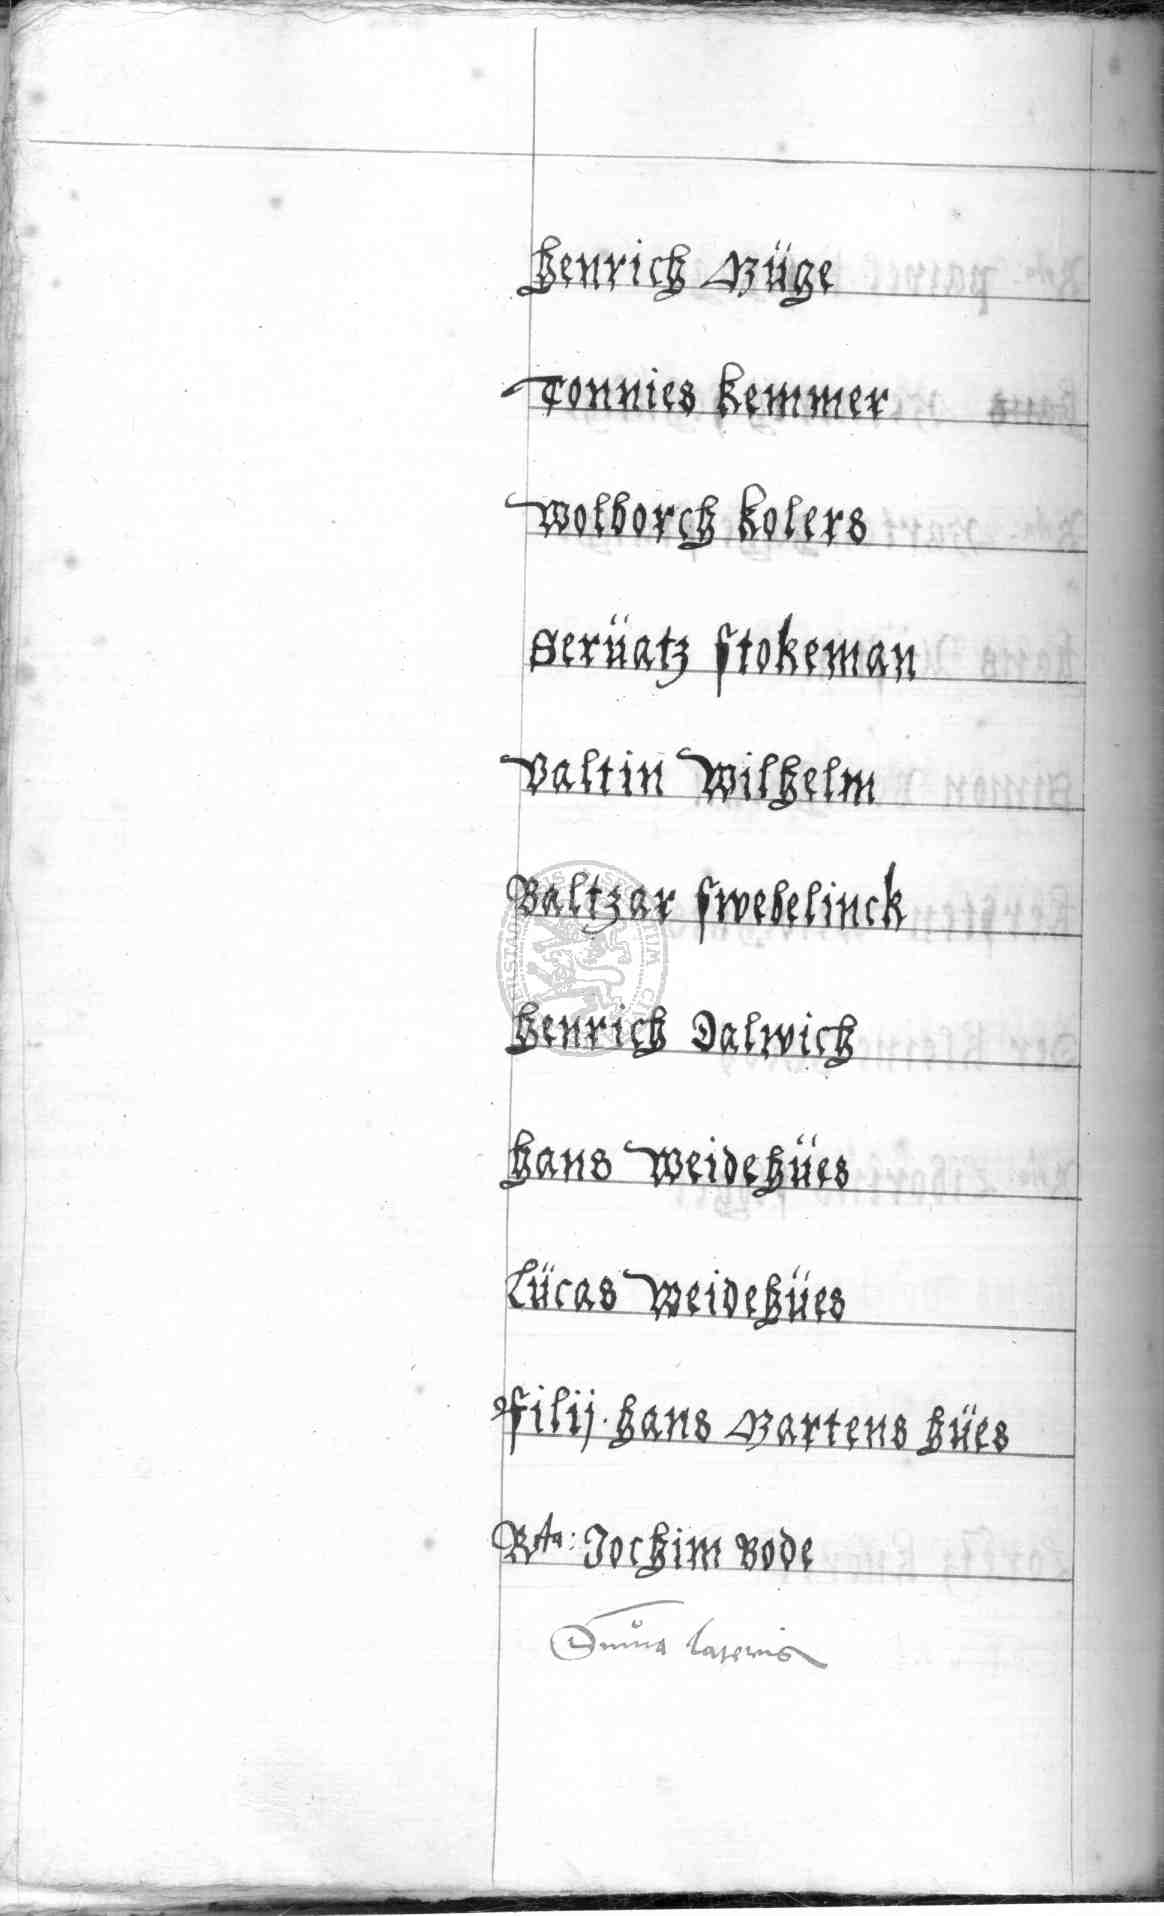 Henrich Müge
Tonnies Kemmer
Wolborch Kolers
Serüatz Stokeman
Valtin Wilhelm
Baltzar Swebelinck
Henrich Dalwich
Hans Weidehües
Lücas Weidehües
Filij. Hans Martens hües
Rta: Jochim Bode
Suma lateris